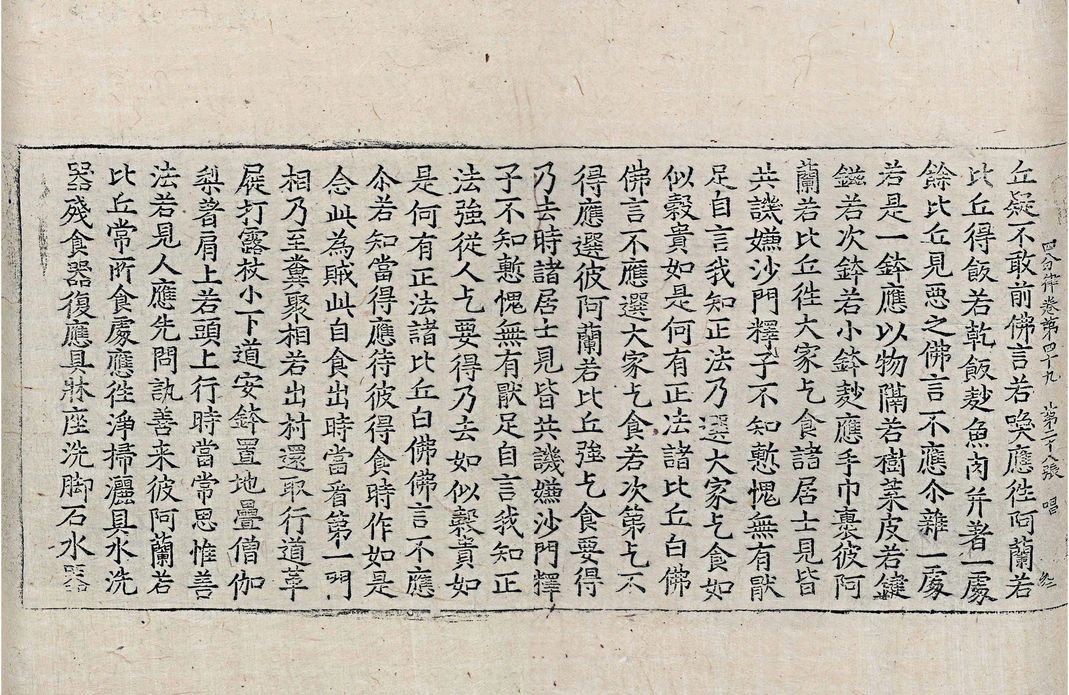 四分律卷第四十九　第二十八張　唱
丘疑不敢前佛言若喚應徃阿蘭若
比丘得飯若乾飯麨魚肉并著一處
餘比丘見惡之佛言不應尒雜一處
若是一鉢應以物隔若樹葉皮若鍵
鎡若次鉢若小鉢麨應手巾裹彼阿
蘭若比丘徃大家乞食諸居士見皆
共譏嫌沙門釋子不知慙愧無有猒
足自言我知正法乃選大家乞食如
似穀貴如是何有正法諸比丘白佛
佛言不應選大家乞食若次第乞不
得應選彼阿蘭若比丘強乞食要得
乃去時諸居士見皆共譏嫌沙門釋
子不知慙愧無有猒足自言我知正
法強從人乞要得乃去如似穀貴如
是何有正法諸比丘白佛佛言不應
尒若知當得應待彼得食時作如是
念此為賊此自食出時當看第一門
相乃至糞聚相若出村還取行道革
屣打露杖小下道安鉢置地疊僧伽
梨著肩上若頭上行時當常思惟善
法若見人應先問訊善来彼阿蘭若
比丘常所食處應徃淨掃灑具水洗
器殘食器復應具牀座洗脚石水器